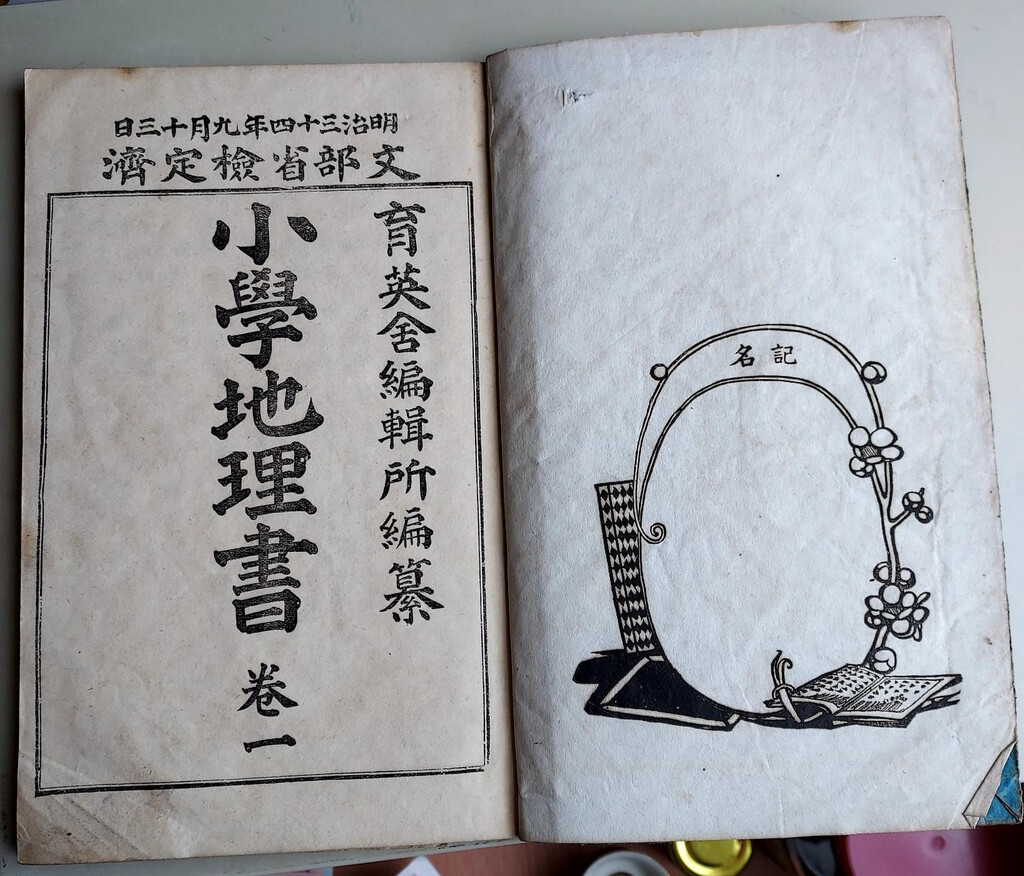 記名
明治三十四年九月十三日
文部省檢定濟
育英舍編輯所編纂
小學地理書 卷一